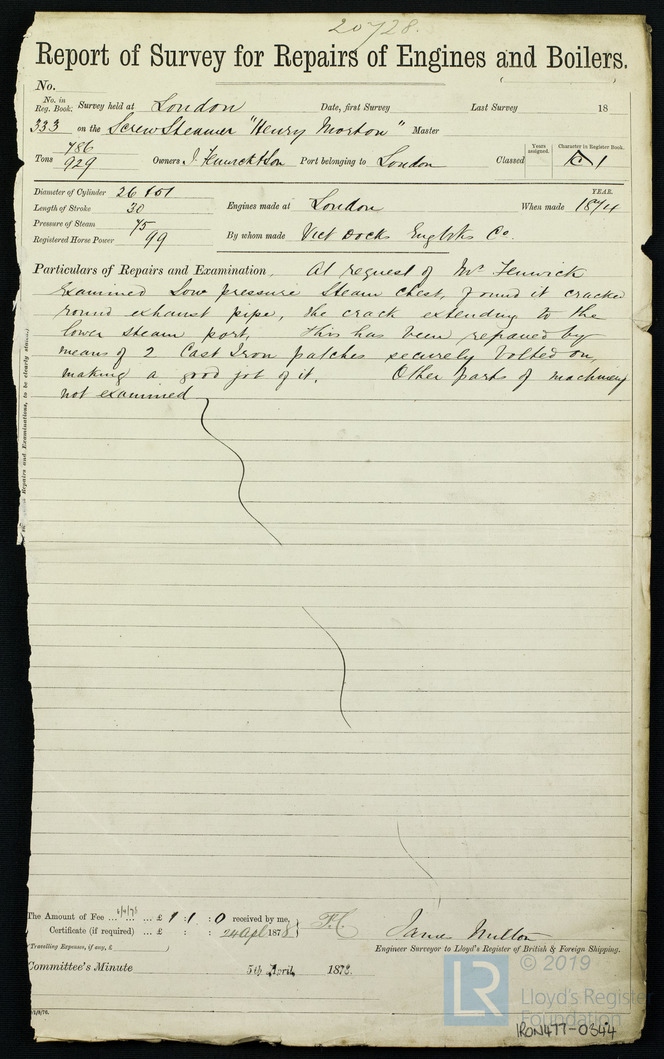 20728.
Report of Survey for Repairs of Engines and Boilers.
No.
No. in Reg. Book. Survey held at London Date, first Survey Last Survey 18
333 on the Screw Steamer "Henry Morton" Master
Tons 786 929 Owners J Fenwick & Son Port belonging to London Classed Years assigned. Character in Register Book. 1
Diameter of Cylinder 26 & 51
Length of Stroke 30
Pressure of Steam 75
Registered Horse Power 99
Engines made at London When made YEAR. 1874
By whom made Vict Docks Eng Wks Co.
Particulars of Repairs and Examination, At request of Mr Fenwick
Examined Low pressure Steam Chest, found it cracked
round exhaust pipe, the crack extending to the
lower steam port, This has been repaired by
means of 2 Cast Iron patches securely bolted on,
making a good job of it. Other parts of machinery
not examined
Repairs and Examinations, to be clearly stated
The Amount of Fee ... £ 1 : 1 : 0 received by me,
Certificate (if required) ... £ : : 187
(Travelling Expenses, if any, £ )
James Milton
Engineer Surveyor to Lloyd's Register of British & Foreign Shipping.
Committee's Minute 5th April 187
LR
© 2019
Lloyd's Register
Foundation
IRON477-0344